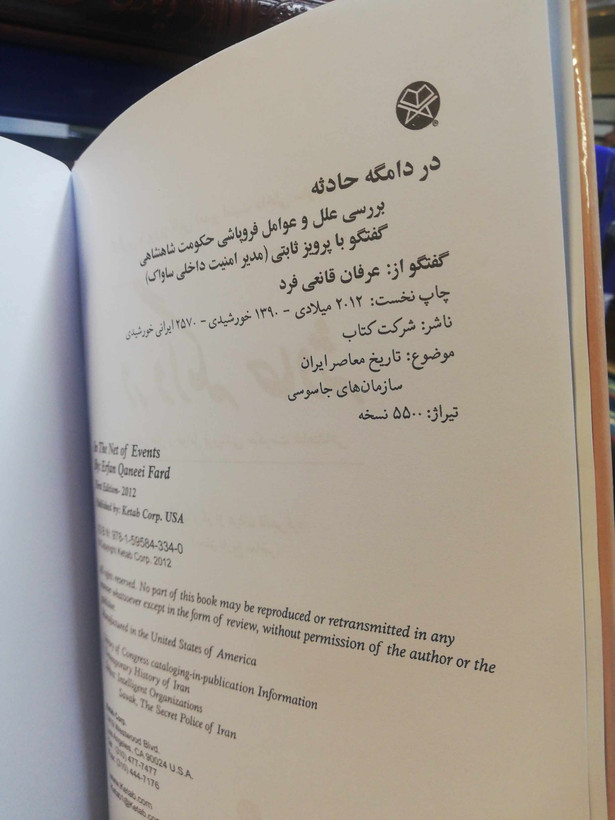 در دامگه حادثه
بررسی علل و عوامل فروپاشی حکومت شاهنشاهی
گفتگو با پرویز ثابتی (مدیر امنیت داخلی ساواک)
گفتگو از: عرفان قانعی فرد
چاپ نخست: ۲۰۱۲ میلادی - ۱۳۹۰ خورشیدی - ۲۵۷۰ ایرانی خورشیدی
ناشر: شرکت کتاب
موضوع: تاریخ معاصر ایران
سازمان‌های جاسوسی
تیراژ: ۵۵۰۰ نسخه
In The Net of Events
By: Erfan Qaneei Fard
First Edition- 2012
Published by: Ketab Corp. USA
ISBN: 978-1-59584-334-0
© Copyright Ketab Corp. 2012
All rights reserved. No part of this book may be reproduced or retransmitted in any
whatsoever except in the form of review, without permission of the author or the
Manufactured in the United States of America
of Congress cataloging-in-publication Information
History of Iran
Intelligent Organizations
Savak, The Secret Police of Iran
Corp.
Blvd.
CA 90024 U.S.A.
477-7477
444-7176
www.Ketab.com